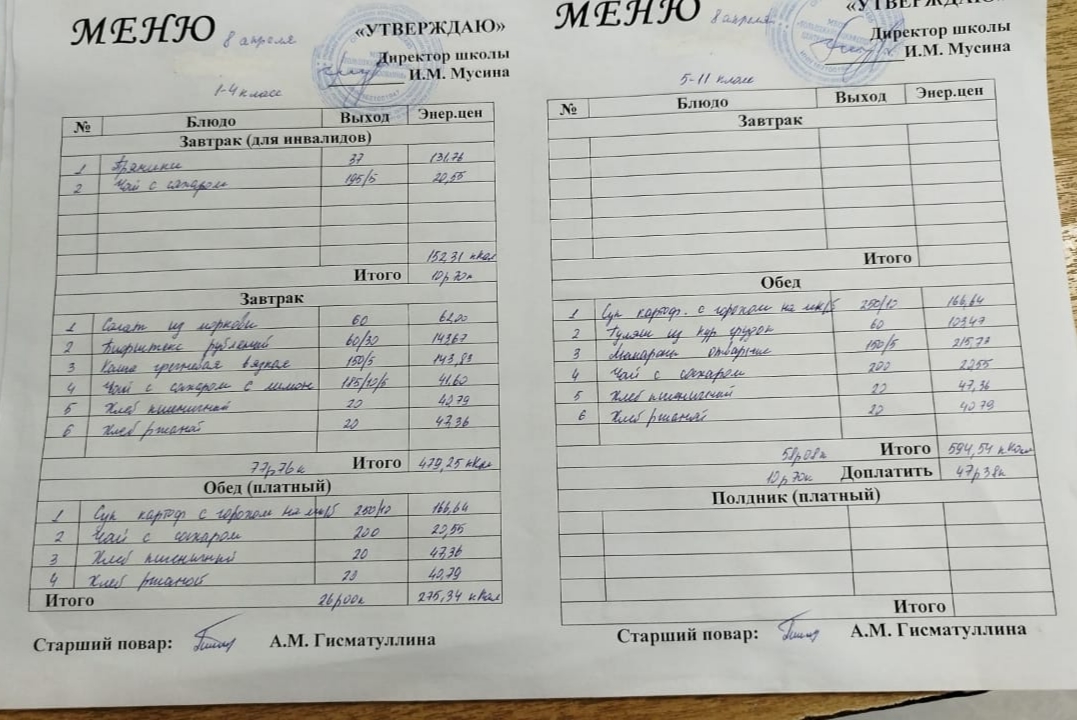 МЕНЮ 8 апреля «УТВЕРЖДАЮ»
Директор школы
И.М. Мусина
1-4 класс
№ Блюдо Выход Энер.цен
Завтрак (для инвалидов)
1 Пряники 37 131,76
2 Чай с сахаром 195/5 20,55
152,31 кКал
Итого 10р70к
Завтрак
1 Салат из моркови 60 62,00
2 Бифштекс рубленый 60/30 143,67
3 Каша гречневая вязкая 150/5 143,83
4 Чай с сахаром с лимон 185/10/5 41,60
5 Хлеб пшеничный 20 40,79
6 Хлеб ржаной 20 47,36
77р76к Итого 479,25 кКал
Обед (платный)
1 Суп картоф с горохом на мк/б 250/10 166,64
2 Чай с сахаром 200 20,55
3 Хлеб пшеничный 20 47,36
4 Хлеб ржаной 20 40,79
Итого 26р00к 275,34 кКал
Старший повар: А.М. Гисматуллина
МЕНЮ 8 апреля «УТВЕРЖДАЮ»
Директор школы
И.М. Мусина
5-11 класс
№ Блюдо Выход Энер.цен
Завтрак
Итого
Обед
1 Суп картоф. с горохом на мк/б 250/10 166,64
2 Гуляш из кур грудок 60 103,47
3 Макароны отварные 150/5 215,73
4 Чай с сахаром 200 20,55
5 Хлеб пшеничный 20 47,36
6 Хлеб ржаной 20 40,79
58р08к Итого 594,54 кКал
10р70к Доплатить 47р38к
Полдник (платный)
Итого
Старший повар: А.М. Гисматуллина